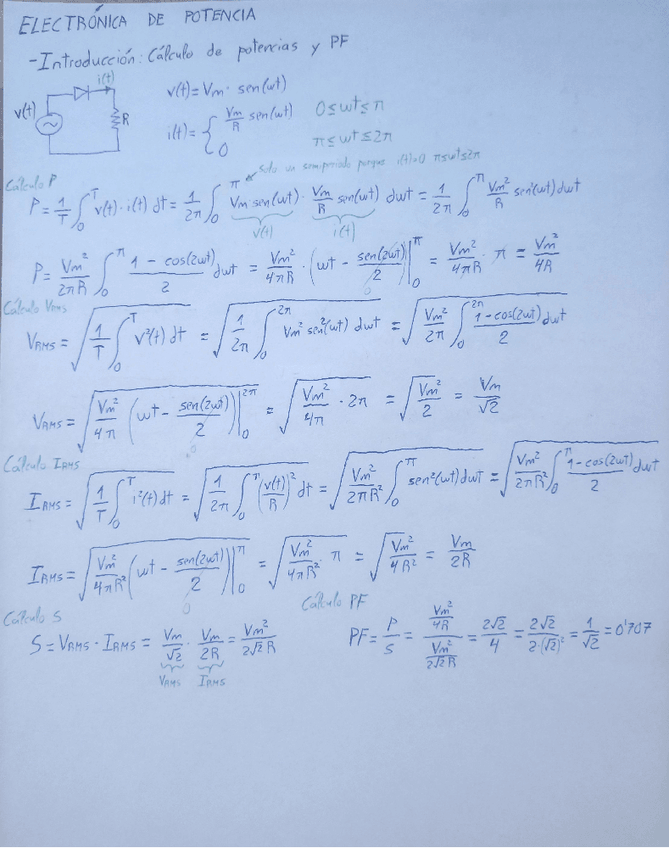 ELECTRÓNICA DE POTENCIA
-Introducción: Cálculo de potencias y PF
i(t)
v(t)
R
v(t) = Vm · sen(wt)
i(t) = { Vm/R sen(wt) 0 ≤ wt ≤ π
0 π ≤ wt ≤ 2π
Solo un semiperiodo porque i(t)=0 π≤wt≤2π
Cálculo P
P = 1/T ∫₀ᵀ v(t) · i(t) dt = 1/2π ∫₀^π Vm sen(wt) · Vm/R sen(wt) dwt = 1/2π ∫₀^π Vm²/R sen²(wt) dwt
v(t) i(t)
P = Vm²/2πR ∫₀^π (1 - cos(2wt))/2 dwt = Vm²/4πR · (wt - sen(2wt)/2)|₀^π = Vm²/4πR · π = Vm²/4R
0
Cálculo VRMS
VRMS = √(1/T ∫₀ᵀ v²(t) dt) = √(1/2π ∫₀^2π Vm² sen²(wt) dwt) = √(Vm²/2π ∫₀^2π (1-cos(2wt))/2 dwt)
VRMS = √(Vm²/4π (wt - sen(2wt)/2)|₀^2π) = √(Vm²/4π · 2π) = √(Vm²/2) = Vm/√2
0
Cálculo IRMS
IRMS = √(1/T ∫₀ᵀ i²(t) dt) = √(1/2π ∫₀^π (v(t)/R)² dt) = √(Vm²/2πR² ∫₀^π sen²(wt) dwt) = √(Vm²/2πR² ∫₀^π (1-cos(2wt))/2 dwt)
IRMS = √(Vm²/4πR² (wt - sen(2wt)/2)|₀^π) = √(Vm²/4πR² · π) = √(Vm²/4R²) = Vm/2R
0
Cálculo S
S = VRMS · IRMS = Vm/√2 · Vm/2R = Vm²/2√2R
VRMS IRMS
Cálculo PF
PF = P/S = (Vm²/4R)/(Vm²/2√2R) = 2√2/4 = 2√2/2·(√2)² = 1/√2 = 0'707